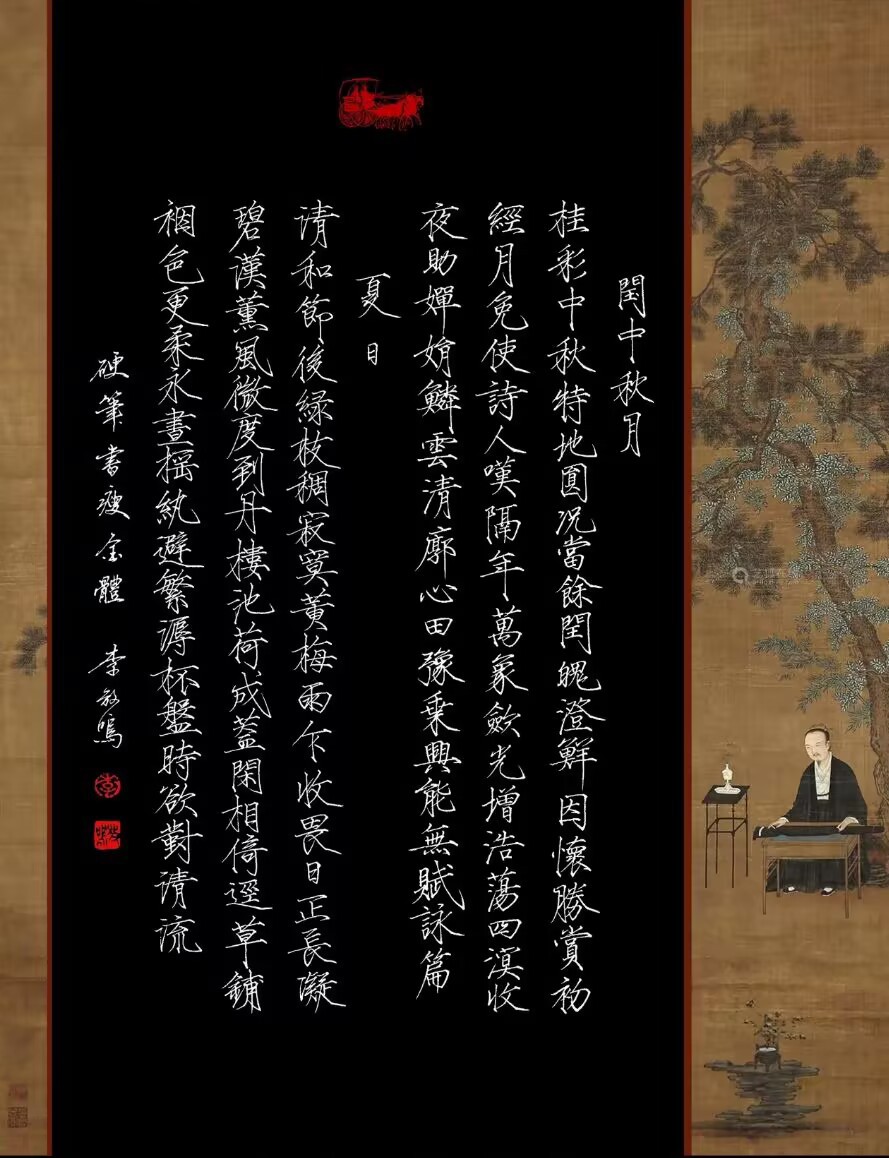 閏中秋月
桂彩中秋特地圓況當餘閏魄澄鮮因懷勝賞初
經月免使詩人嘆隔年萬象斂光增浩蕩四溟收
夜助嬋娟鱗雲清廓心田豫乘興能無賦詠篇
夏日
清和節後綠枝稠寂寞黃梅雨乍收畏日正長凝
碧漢薰風微度到丹樓池荷成蓋閑相倚逕草鋪
裀色更柔永晝搖紈避繁溽杯盤時欲對清流
硬筆書瘦金體 李鳴